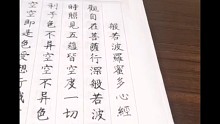 般若波羅蜜多心經
觀自在菩薩行深般若波
時照見五蘊皆空度一切
利子色不異空空不異色
空空即是色受想行識